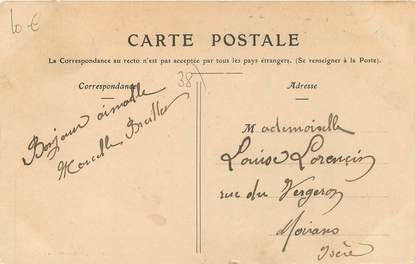 10 €
CARTE POSTALE
La Correspondance au recto n'est pas acceptée par tous les pays étrangers. (Se renseigner à la Poste).
Correspondance
38
Adresse
Bonjour aimable
Marcelle
Mademoiselle
Louise Lorençin
rue du Vergeron
Moirans
Isère